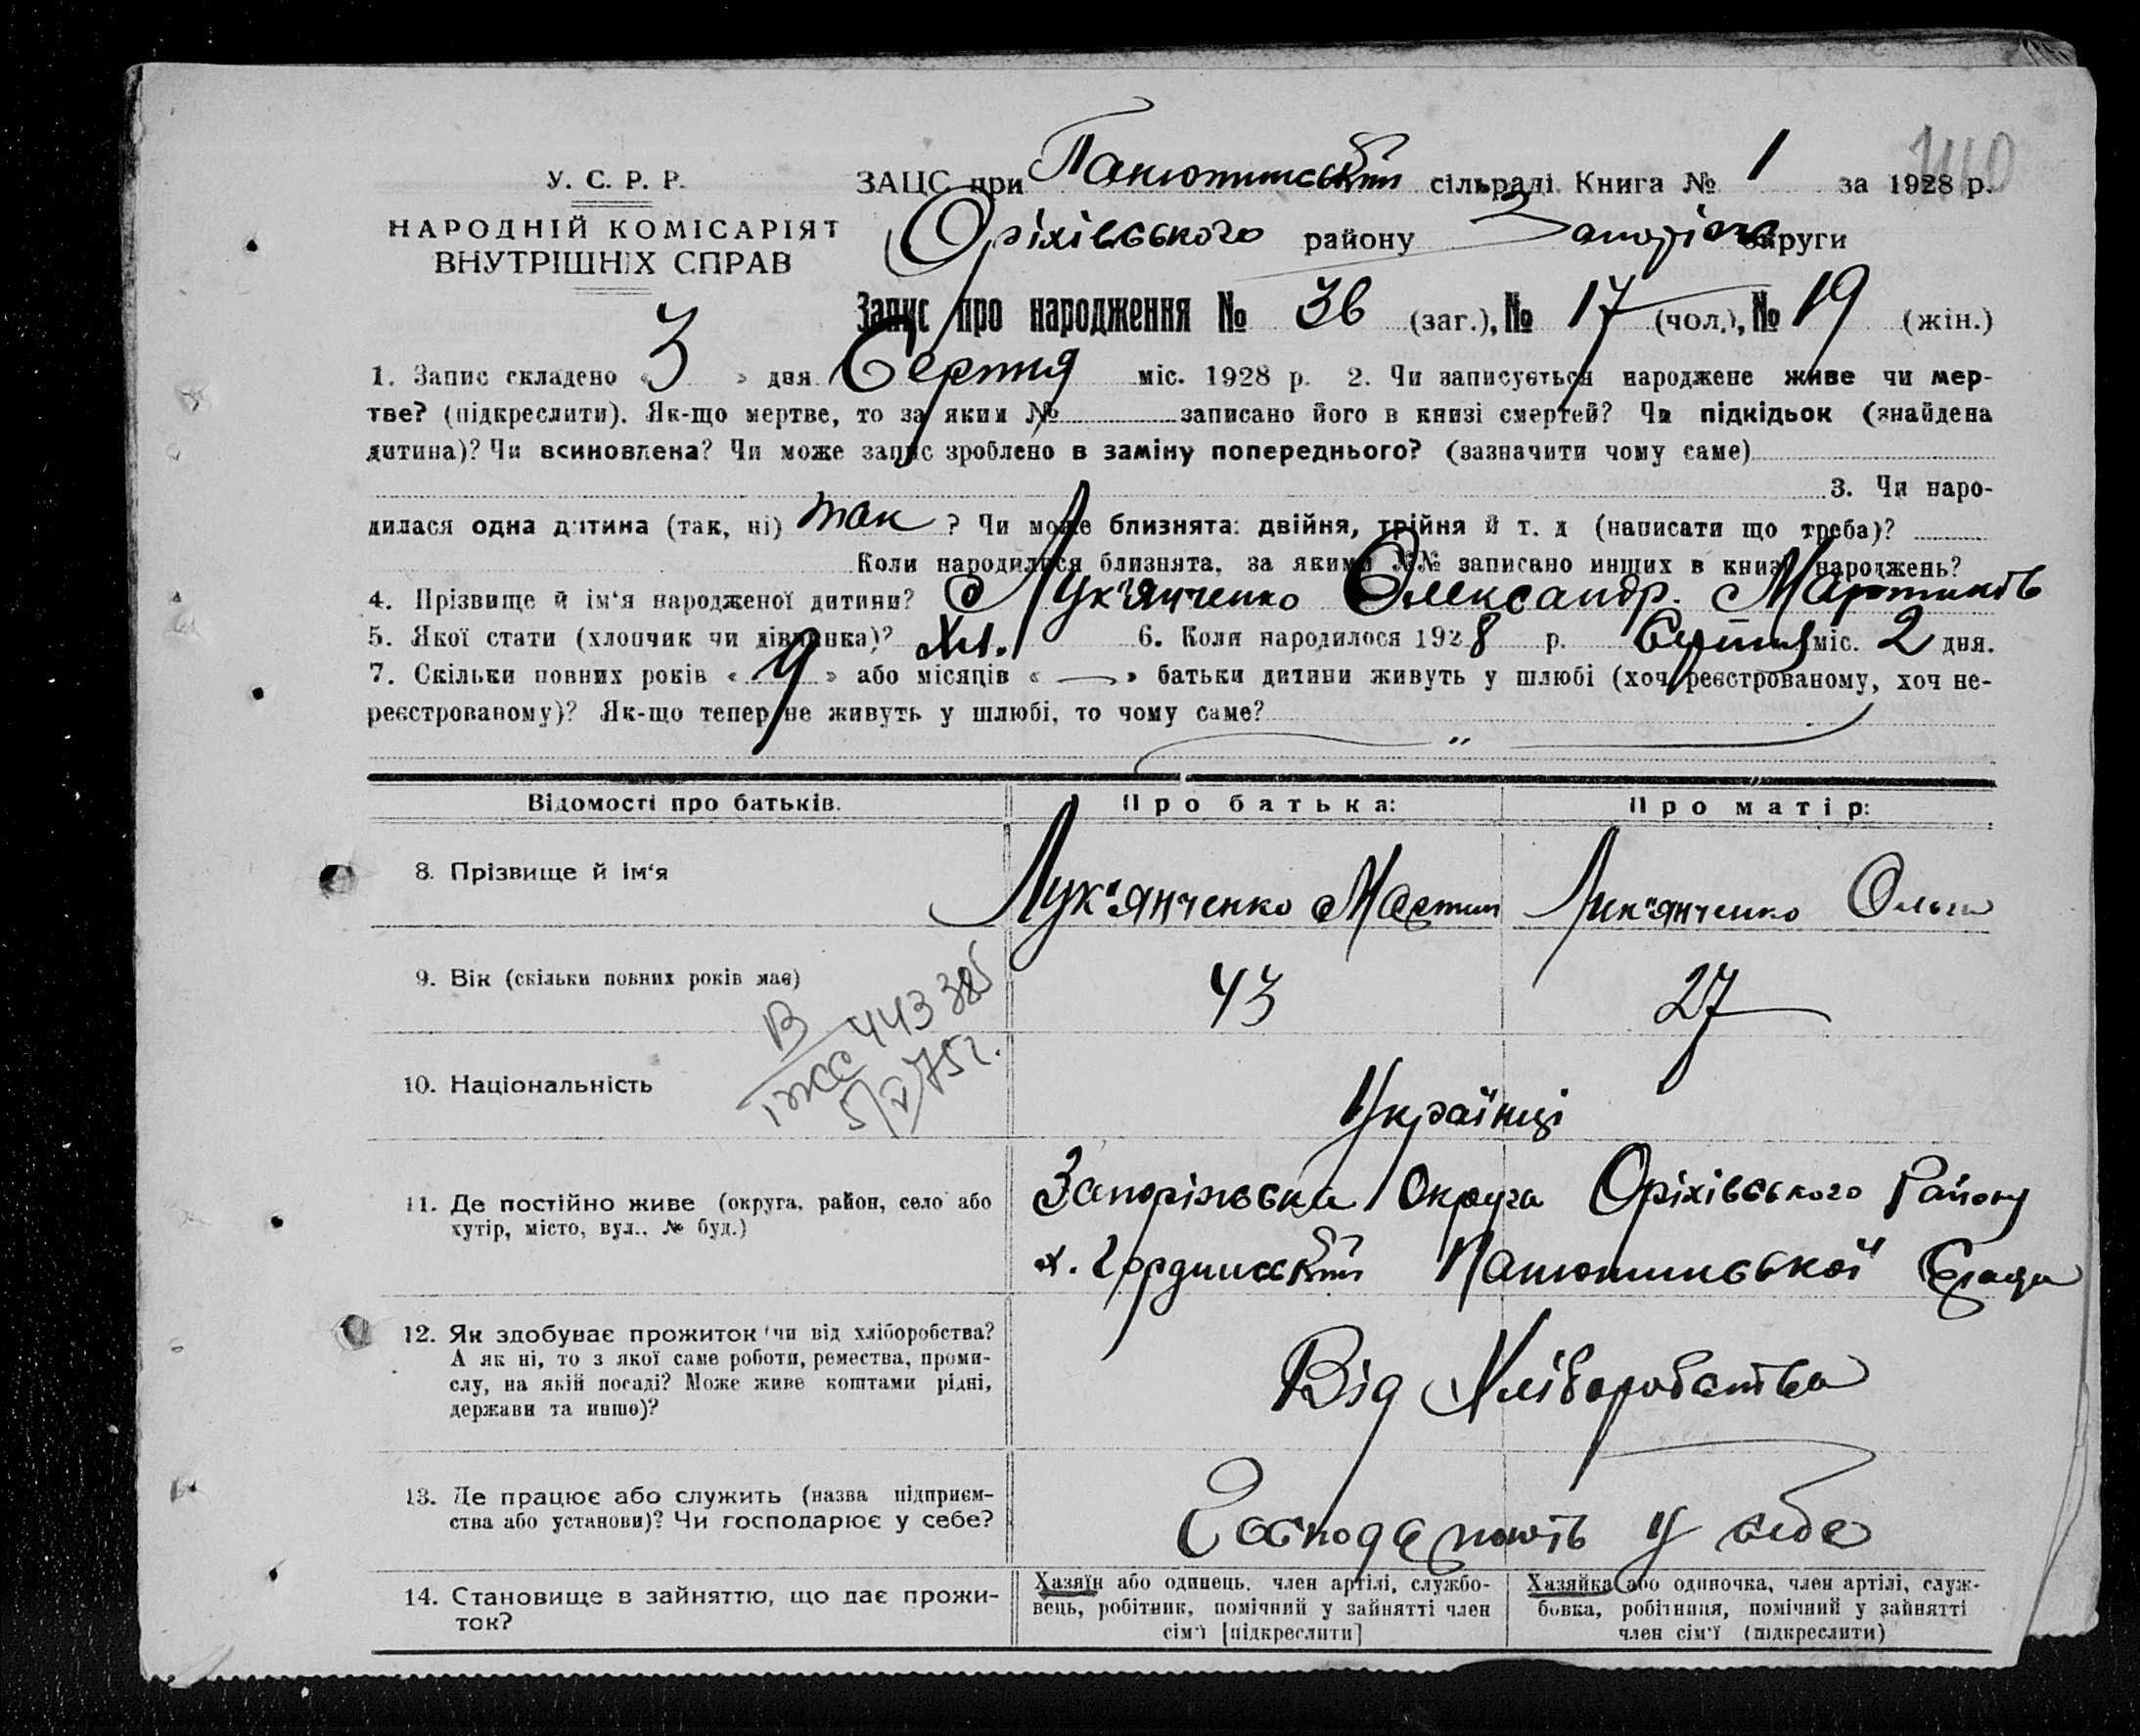 140
У. С. Р. Р.
НАРОДНІЙ КОМІСАРІЯТ
ВНУТРІШНІХ СПРАВ
ЗАЦС при Панютинській сільраді. Книга № 1 за 1928 р.
Оріхівського району Запоріжс округи
Запис про народження № 36 (заг.), № 17 (чол.), № 19 (жін.)
1. Запис складено « 3 » дня Серпня міс. 1928 р. 2. Чи записується народжене живе чи мер-
тве? (підкреслити). Як-що мертве, то за яким № записано його в книзі смертей? Чи підкідьок (знайдена
дитина)? Чи всиновлена? Чи може запис зроблено в заміну попереднього? (зазначити чому саме)
3. Чи наро-
дилася одна дитина (так, ні) так ? Чи може близнята: двійня, трійня й т. д (написати що треба)?
Коли народилися близнята, за якими №№ записано инших в книзі народжень?
4. Прізвище й ім‘я народженої дитини? Лук'янченко Олександр. Мартинів
5. Якої статі (хлопчик чи дівчинка)? Хл. 6. Коли народилося 1928 р. Серпня міс. 2 дня.
7. Скільки повних років « 9 » або місяців « — » батьки дитини живуть у шлюбі (хоч реєстрованому, хоч не-
реєстрованому)? Як-що тепер не живуть у шлюбі, то чому саме?
"
Відомості про батьків. Про батька: Про матір:
8. Прізвище й ім‘я Лук"янченко Мартин Лук"янченко Ольга
9. Вік (скільки повних років має) 43 27
443 385
5/V 75 г.
10. Національність Українці
11. Де постійно живе (округа, район, село або
хутір, місто, вул., № буд.)
Запоріжська Округа Оріхівського Району
х. Гординський Панютинської С/ради
12. Як здобуває прожиток чи від хліборобства?
А як ні, то з якої саме роботи, ремества, проми-
слу, на якій посаді? Може живе коштами рідні,
держави та инше)?
Від Хліборобства
13. Де працює або служить (назва підприєм-
ства або установи)? Чи господарює у себе?
Господарюють у себе
14. Становище в зайняттю, що дає прожи-
ток?
Хазяїн або одинець. член артілі, службо-
вець, робітник, помічний у зайнятті член
сім‘ї [підкреслити]
Хазяйка або одиночка, член артілі, служ-
бовка, робітниця, помічний у зайнятті
член сім‘ї (підкреслити)